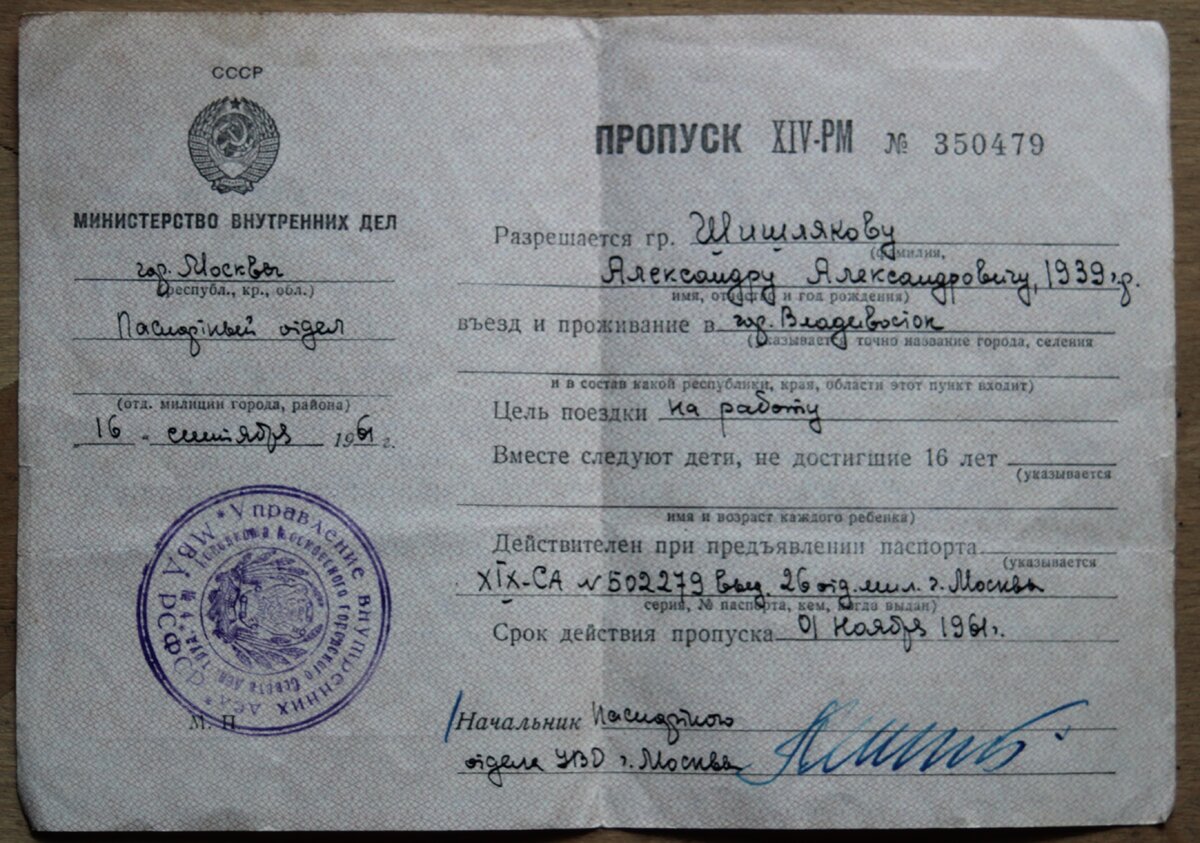 СССР
МИНИСТЕРСТВО ВНУТРЕННИХ ДЕЛ
гор. Москвы
(республ., кр., обл.)
Паспортный отдел
(отд. милиции города, района)
16 - сентября 1961 г.
Управление внутренних дел
МВД РСФСР
М. П
ПРОПУСК XIV-РМ № 350479
Разрешается гр. Шишлякову
(фамилия,
Александру Александровичу, 1939 г.р.
имя, отчество и год рождения)
въезд и проживание в гор. Владивосток
(указывается точно название города, селения
и в состав какой республики, края, области этот пункт входит)
Цель поездки на работу
Вместе следуют дети, не достигшие 16 лет
(указывается
имя и возраст каждого ребенка)
Действителен при предъявлении паспорта
(указывается
XIX-СА № 502279 выд. 26 отд. мил. г. Москвы
серия, № паспорта, кем, когда выдан)
Срок действия пропуска 01 ноября 1961г.
Начальник Паспортного
отдела УВД г. Москвы